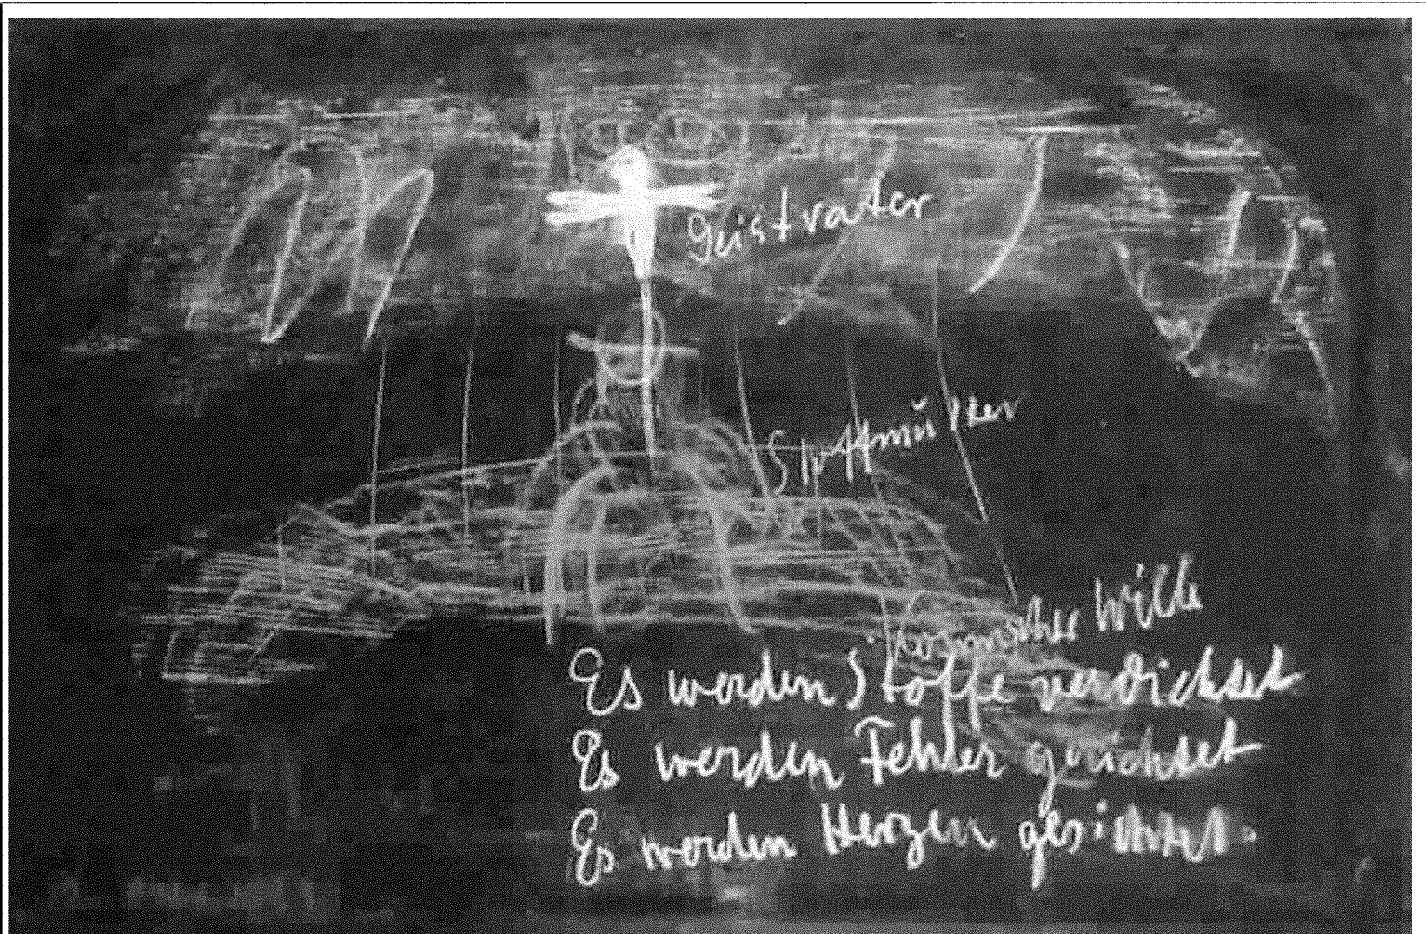 Geistvater
Stoffmutter
Kosmischer Wille
Es werden Stoffe verdichtet
Es werden Fehler gerichtet
Es werden Herzen gesichtet.